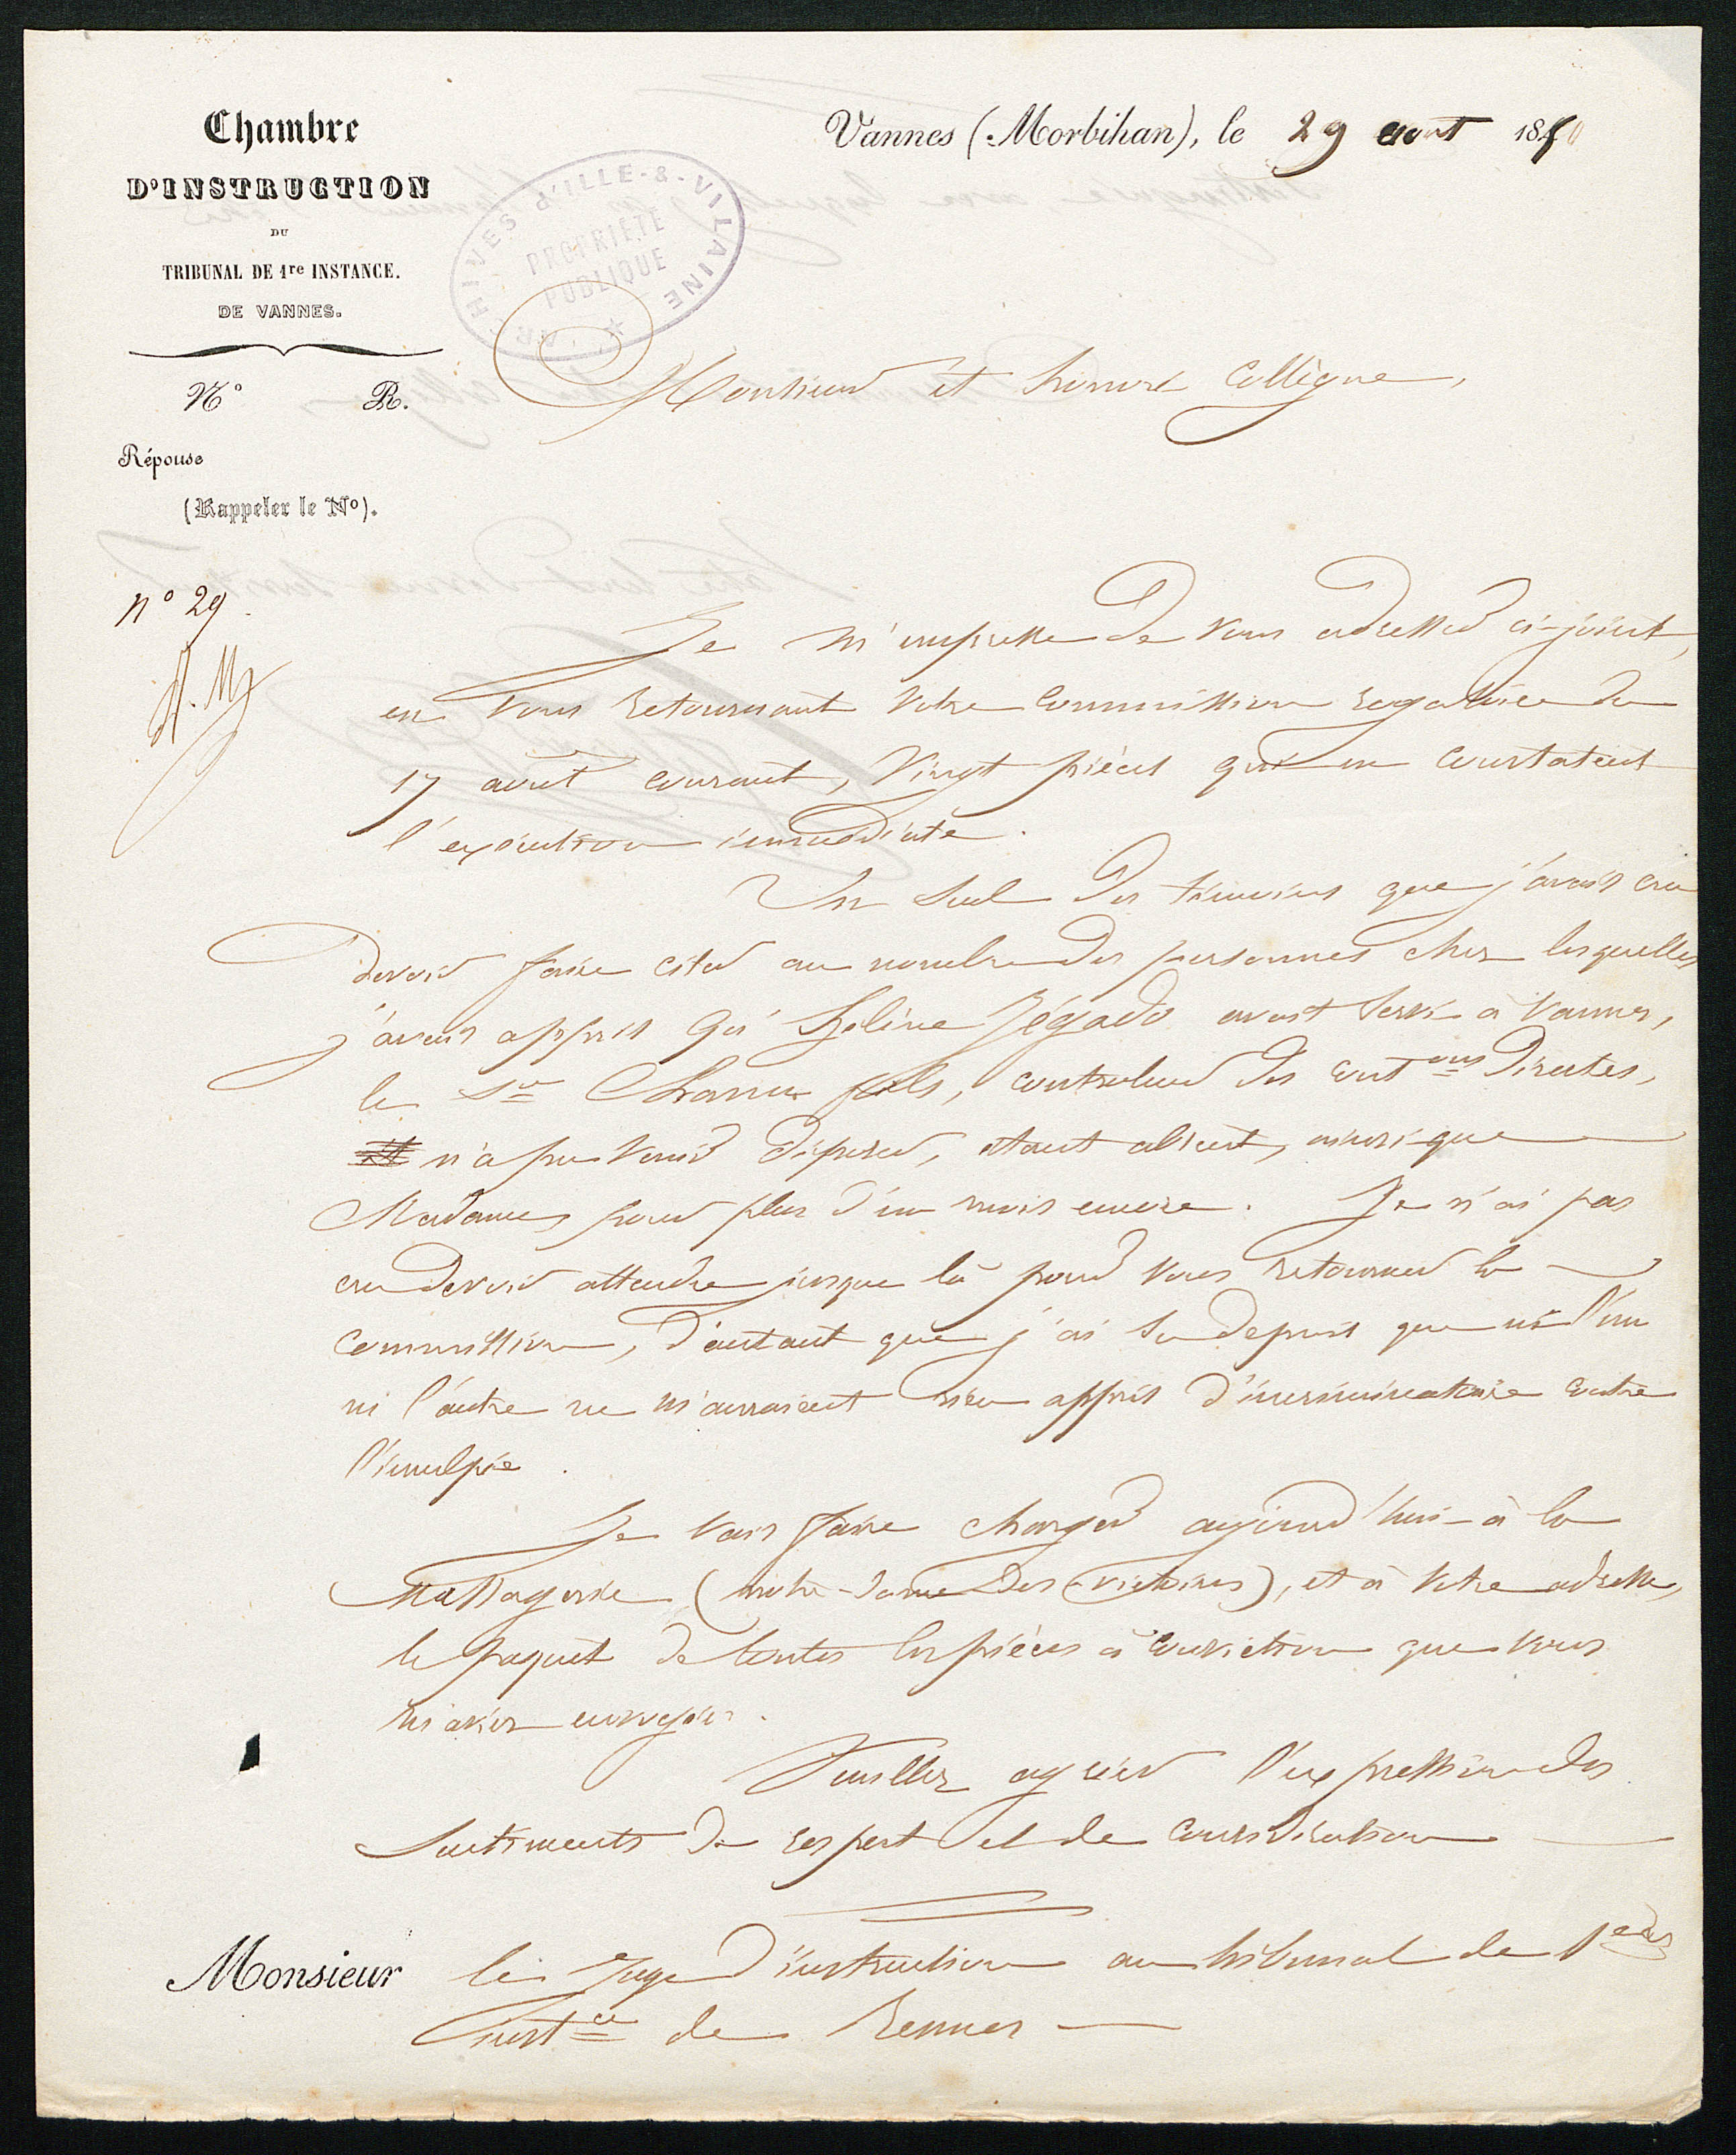 Chambre
D'INSTRUCTION
DU
TRIBUNAL DE 1re INSTANCE.
DE VANNES.
N° R.
Réponse
(Rappeler le N°).
n° 29
Vannes (Morbihan), le 29 aout 18
ARCHIVES D'ILLE-&-VILAINE
PROPRIÉTÉ
PUBLIQUE
Monsieur et honoré Collègue,
Je m'empresse de vous adresser ci-joint,
en vous retournant votre commission rogatoire du
17 aout courant, vingt pièces qui en constatent
l'exécution immédiate.
Un seul des témoins que j'avais cru
devoir faire citer au nombre des personnes chez lesquelles
j'avais appris qu'hélène Jégado avait servi à Vannes,
le Sr fils, controleur des contons directes,
n'a pu venir déposer, étant absent, ainsi que
Madame, pour plus d'un mois encore. Je n'ai pas
cru devoir attendre jusque là pour vous retourner la
commission, d'autant que j'ai su depuis que ni l'un
ni l'autre ne m'auraient rien appris d'incriminatoire contre
l'inculpée.
Je vais faire charger aujourd'hui à la
Messagerie (notre-dame des victoires), et à votre adresse,
le paquet de toutes les pièces à conviction que vous
m'aviez envoyées.
Veuillez agréer l'expression des
sentiments de respect et de considération
Monsieur le Juge d'instruction au tribunal de 1ere
instce de Rennes